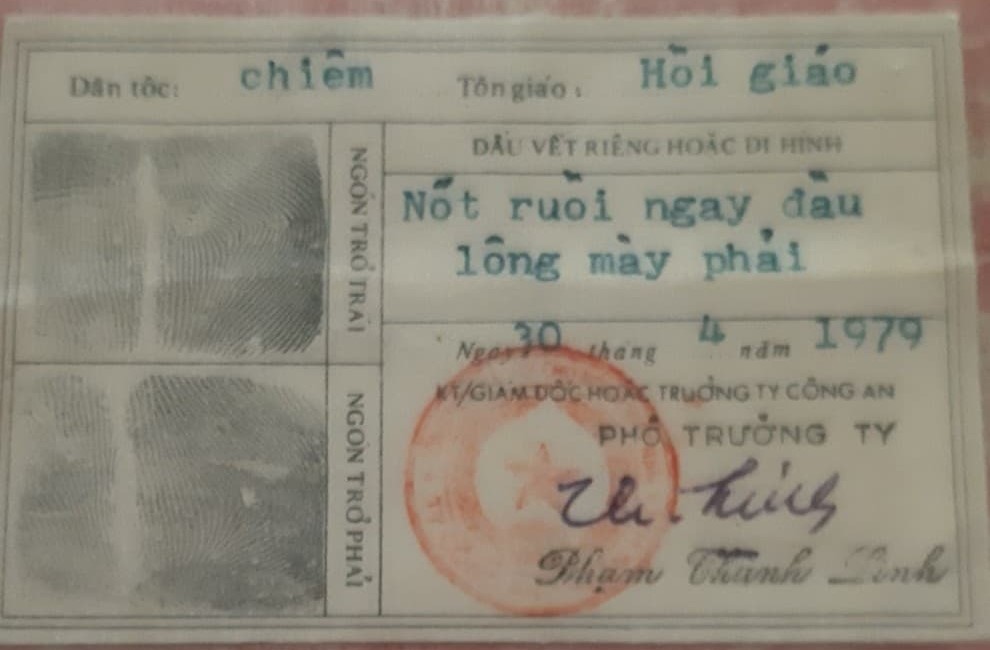 Dân tộc: chiêm Tôn giáo: Hồi giáo
NGÓN TRỎ TRÁI
DẤU VẾT RIÊNG HOẶC DỊ HÌNH
Nốt ruồi ngay đầu
lông mày phải
Ngày 30 tháng 4 năm 1979
KT/GIÁM ĐỐC HOẶC TRƯỞNG TY CÔNG AN
PHÓ TRƯỞNG TY
NGÓN TRỎ PHẢI
Phạm Thanh Linh